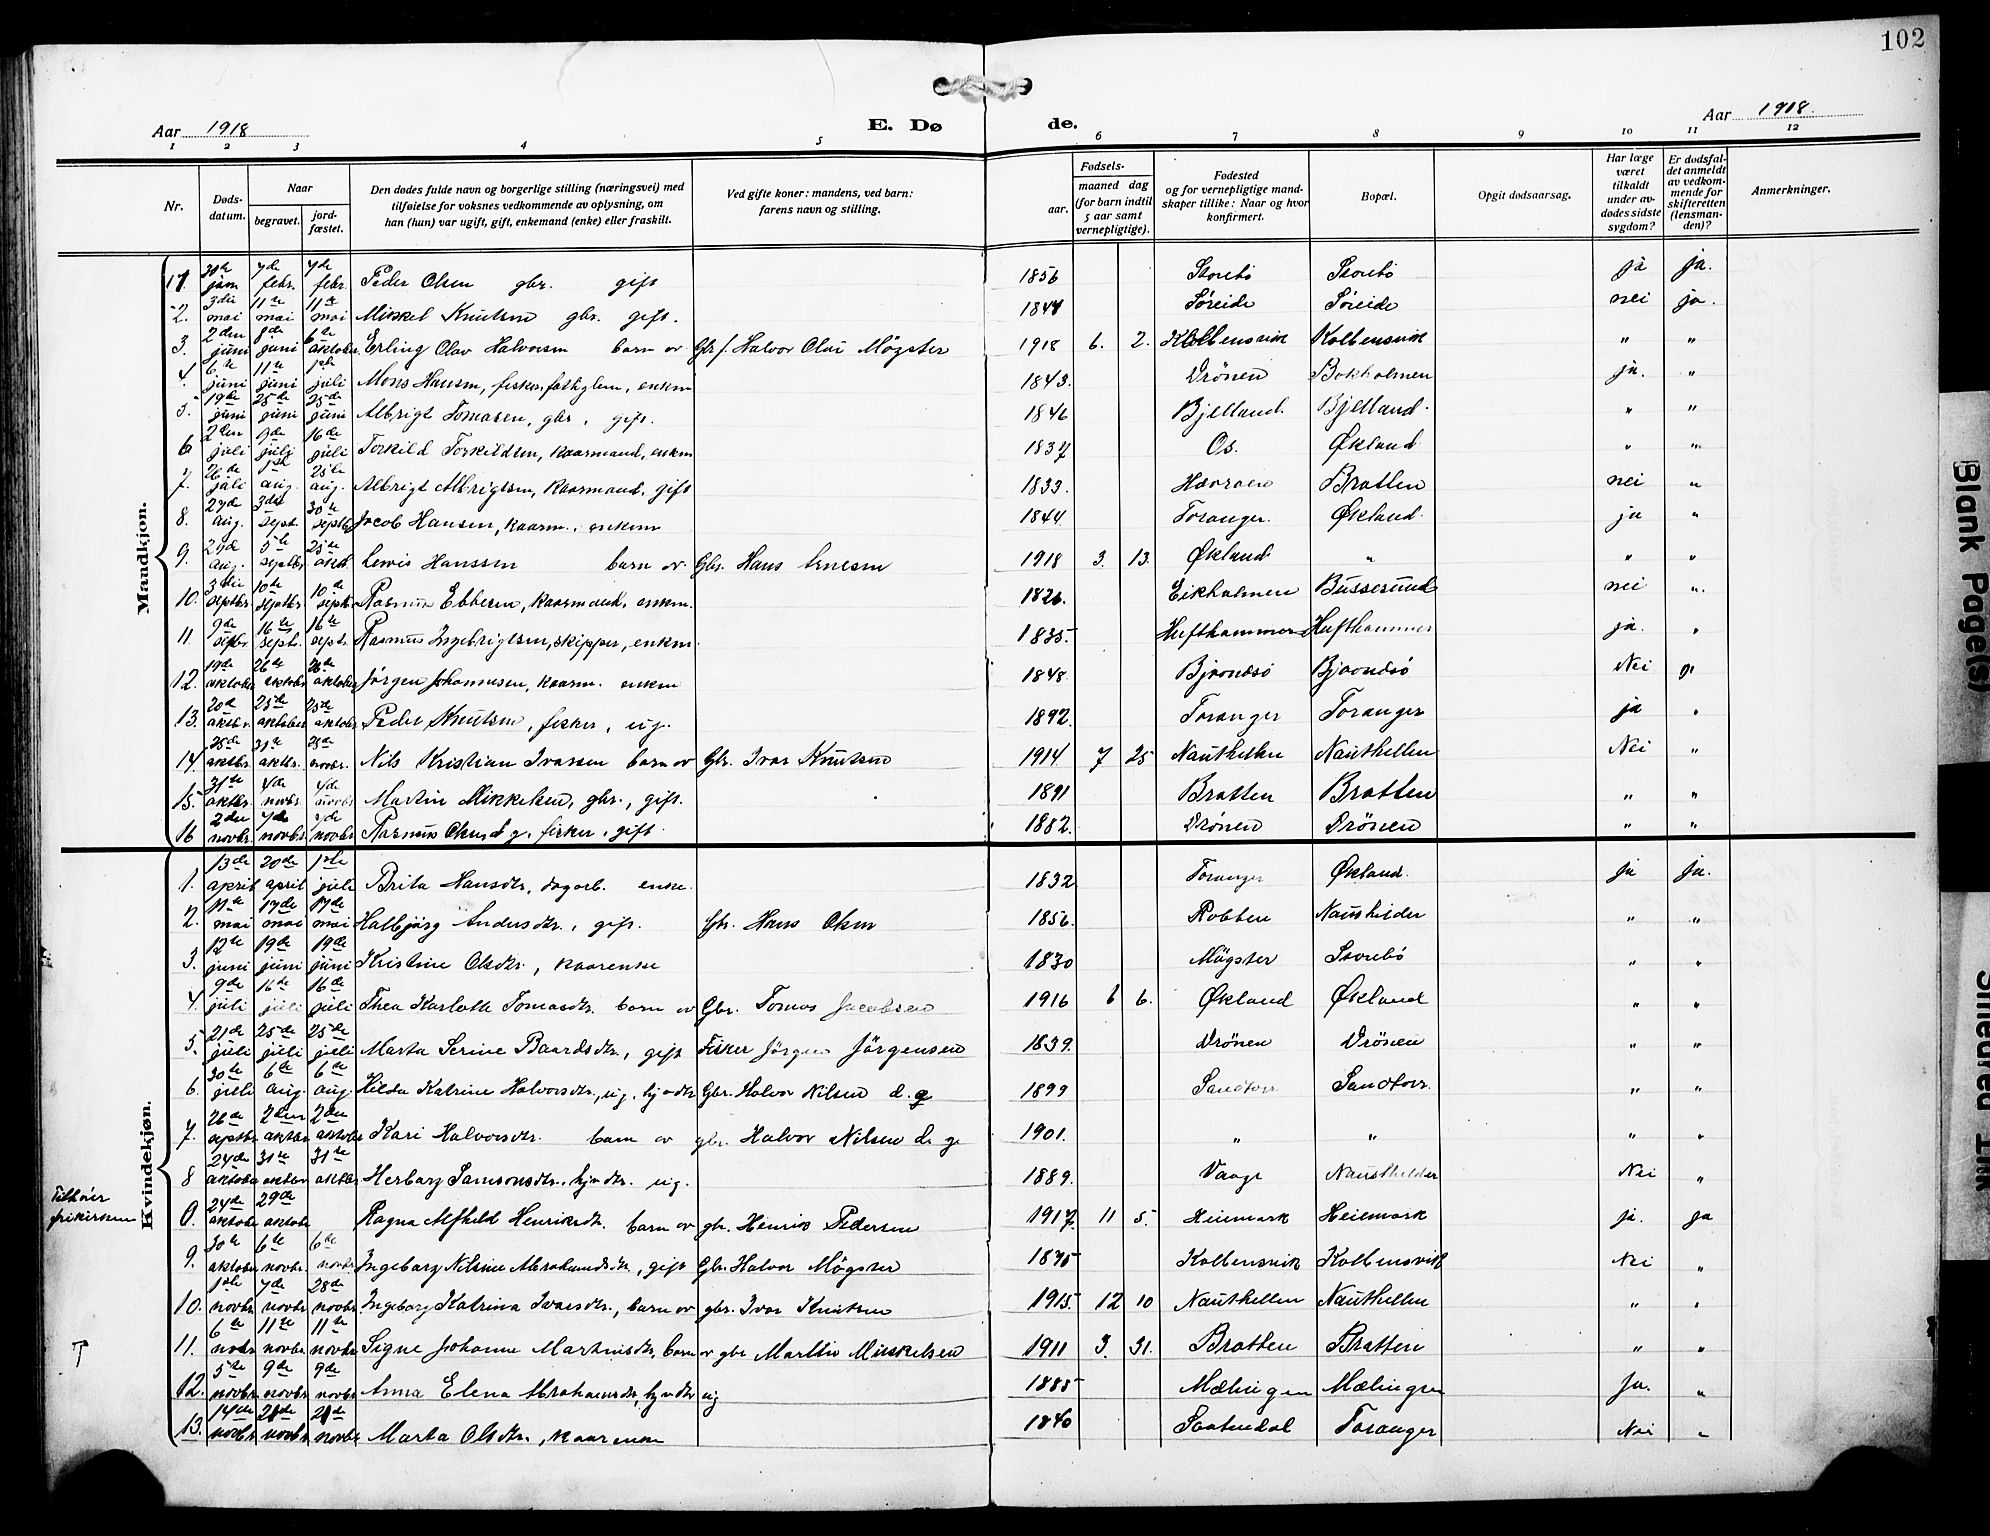 102
Aar 1918 E. Dø de. Aar 1918.
1 2 3 4 5 6 7 8 9 10 11 12
Nr. Døds-datum. Naar begravet. jord-fæstet. Den dødes fulde navn og borgerlige stilling (næringsvei) med tilføielse for voksnes vedkommende av oplysning, om han (hun) var ugift, gift, enkemand (enke) eller fraskilt. Ved gifte koner: mandens, ved barn: farens navn og stilling. Fødsels- aar. maaned dag (for barn indtil 5 aar samt vernepligtige). Fødested og for vernepligtige mandskaper tillike: Naar og hvor konfirmert. Bopæl. Opgit dødsaarsag. Har læge været tilkaldt under avdødes sidste sygdom? Er dødsfaldet anmeldt av vedkommende for skifteretten (lensmanden)? Anmerkninger.
Mandkjøn.
1. 30te jan. 7de febr. 7de febr. Peder Olsen gbr. gift 1856 Storebö Storebö ja ja.
2. 3die mai 11te mai 11te mai Mikkel Knutsen gbr. gift. 1844 Söreide Söreide nei ja.
3. 2den juni 8de juni 6te oktober. Erling Olav Halvorsen barn av Gbr f. Halvor Olai Mögster 1918 6. 2. Kolbensvik Kolbensvik " "
4. 6te juni 11te juni 1ste juli Mons Hansen, fisker, enkm 1843. Drönen Bokholmen ja. "
5. 19de juni 25de juni 25de juni Albrigt Tomasen, gbr, gift. 1846 Bjelland. Bjelland. " "
6 2den juli 9de juli 16de juli Torkild Torkildsen, kaarmand, enkm 1837 Os. Økland " "
7. 26de juli 1ste aug. 25de aug. Albrigt Albrigtsen, kaarmand, gift 1833. Haaraen Bratten nei "
8. 27de aug. 3die sept. 30te septb. Jacob Hansen, kaarm., enkem 1844 Toranger. Økland. ja "
9. 29de aug. 5te septbr. 25de oktb. Lewis Hanssen barn av Gbr. Hans Arnesen 1918 3. 13. Økland " " "
10. 3die septbr. 10de septbr. 10de septbr Rasmus Ebbesen, kaarmand, enkm. 1826. Eikholmen Busserund nei "
11 9de septbr. 16te sept. 16te sept. Rasmus Ingebrigtsen, skipper, enkm. 1835. Hufthammer Hufthammer ja. "
12. 19de oktober 26de oktober 26de oktober Jörgen Johannesen, kaarm. enkm 1848. Bjaandsö Bjaandsö Nei "
13. 20de oktbr. 25de oktober 25de oktober Peder Knutsen, fisker, ug. 1892. Toranger Toranger ja "
14. 25de oktbr. 31te oktbr. 28de novbr. Nils Kristian Ivarsen barn av Gbr. Ivar Knutsen 1914 7 25 Nauthellen Nauthellen Nei "
15. 31te oktbr. 4de novbr. 4de novbr Martin Mikkelsen, gbr., gift. 1891 Bratten Bratten " "
16 2den novbr. 7de novbr. 7de novbr Rasmus Olsen d.y. fisker, gift. 1882. Drönen Drönen " "
Kvindekjøn.
1. 13de april 20de april 1ste juli Brita Hansdtr., dagarb. enke. 1832 Toranger Økland. ja ja.
2. 11te mai 17de mai 17de mai Halbjörg Andersdtr., gift. Gbr. Hans Olsen 1856. Robben Naushilder " "
3. 12te juni 19de juni 19de juni Kristine Olsdtr., kaarenke 1830 Mögster Storebö " "
4. 9de juli 16de juli 16de juli Thea Karlotte Tomasdtr. barn av Gbr. Tomas Jacobsen 1916 6 6. Økland Økland " "
5. 21de juli 25de juli 25de juli Marta Serine Baardsdtr., gift Fisker Jörgen Jörgensen 1839. Drönen Drönen " "
6. 30te juli 6te aug. 6te aug. Hilda Katrine Halvorsdtr., ug. hjvdtr Gbr. Halvor Nilsen d. y 1899 Sandtorv Sandtorv. " "
7. 26de septbr 2den oktbr 2den oktober Kari Halvorsdtr. barn av gbr. Halvor Nilsen d. y 1901. " " " "
8 24de oktober 31te oktber 31te oktbr Herborg Samsonsdtr., hjvdtr. ug. 1889. Vaage Nausthilder Nei "
Tilhörer frikirken 0. 24de oktober 29de oktober Ragna Alfhild Henriksdtr. barn av gbr. Henrik Pedersen 1917. 11 5. Heiemark Heiemark ja. ja
9. 30te oktober 6te novbr. 6te novbr Ingeborg Nilsine Abrahamsdtr., gift Gbr. Halvor Mögster 1875 Kolbensvik Kolbensvik Nei "
10. 1ste novbr. 7de novbr. 28de novbr. Ingeborg Katrina Ivarsdtr., barn av gbr. Ivar Knutsen 1915. 12 10 Nauthellen Nauthellen " "
11. 6te novbr 11te novbr. 11te novbr. Signe Johanne Martinsdtr, barn av gbr Martin Mikkelsen 1911 3. 31. Bratten Bratten " "
12. 5te novbr 9de novbr 9de novbr Anna Elena Abrahamsdtr, hjvdtr ug 1885 Mælingen Mælingen Ja. "
13. 14de novbr. 21de novbr. 21de novbr. Marta Olsdtr., kaarenke 1840 Saatendal Toranger Nei "
Blank Page(s)
Smeared Ink